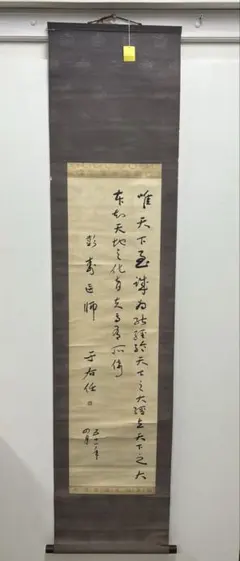 唯天下至誠為能經綸天下之大經立天下之大
本知天地之化育夫焉有所倚
医師
于右任
四月